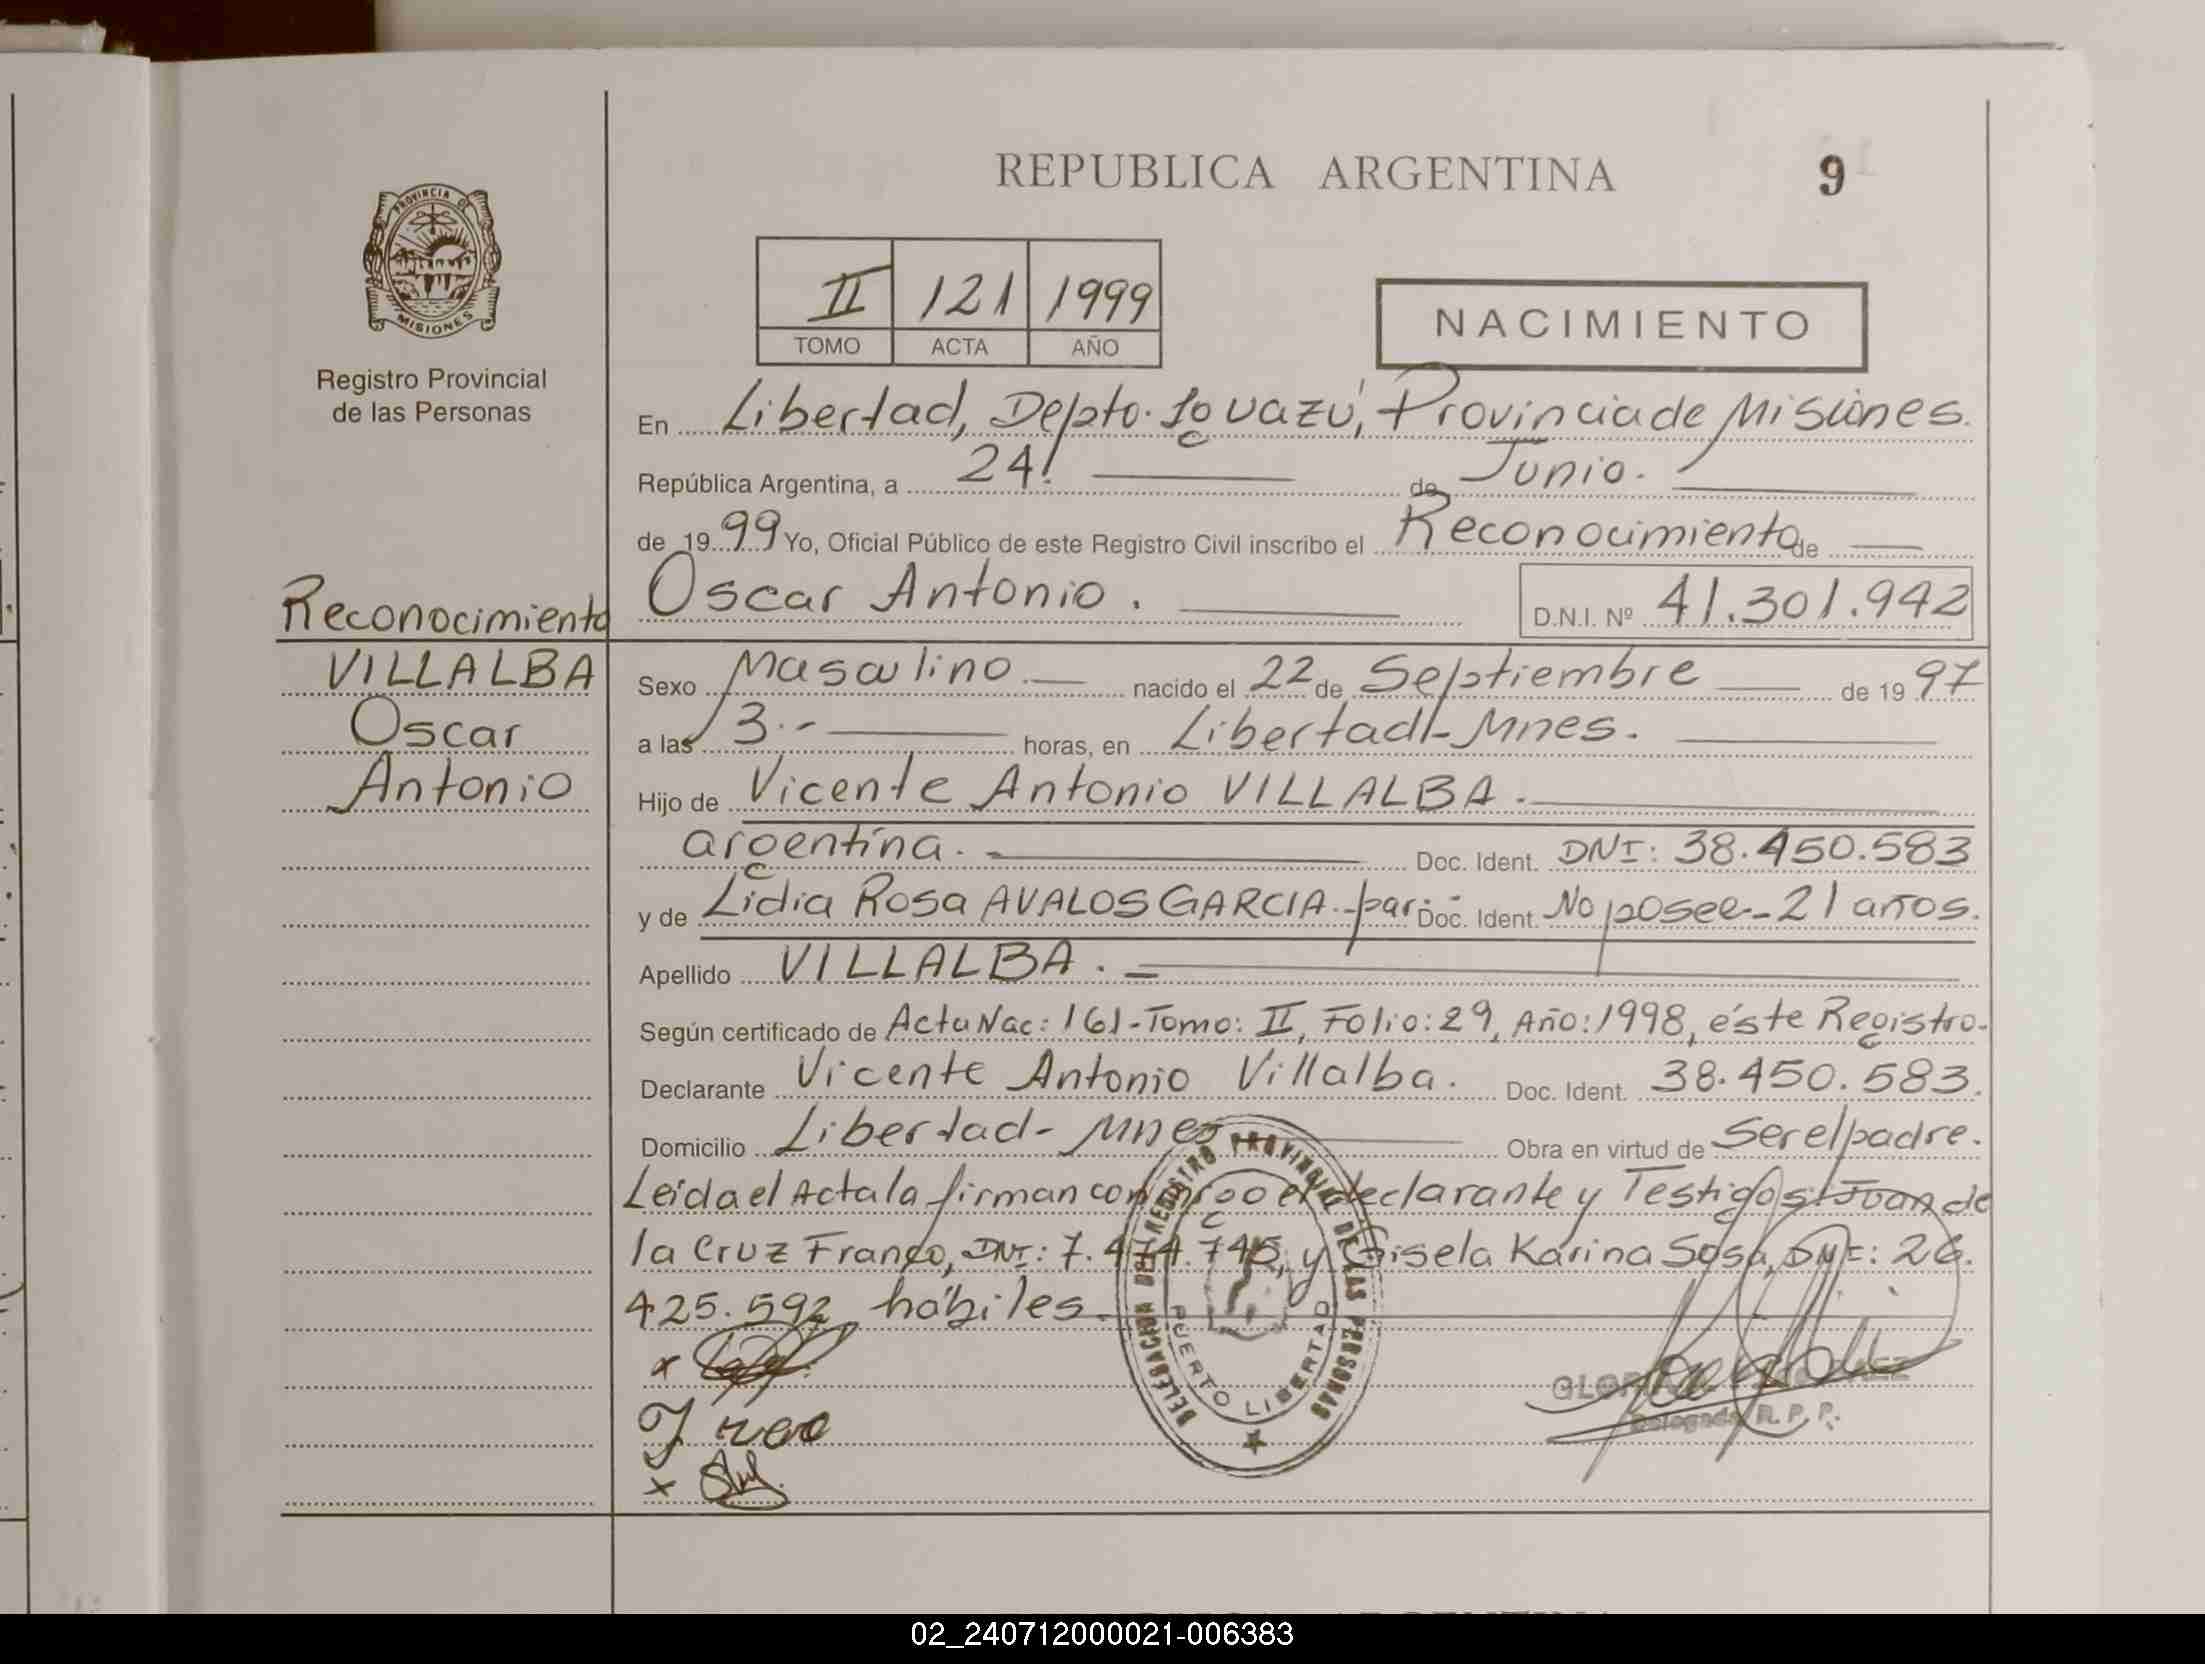 REPUBLICA ARGENTINA 9
PROVINCIA DE MISIONES
Registro Provincial
de las Personas
II 121 1999
TOMO ACTA AÑO
NACIMIENTO
En Libertad, Depto. Iguazú, Provincia de Misiones.
República Argentina, a 24. de Junio.
de 1999 Yo, Oficial Público de este Registro Civil inscribo el Reconocimiento de
Oscar Antonio. D.N.I. Nº 41.301.942
Reconocimiento
VILLALBA
Oscar
Antonio
Sexo Masculino nacido el 22 de Septiembre de 1997
a las 13.- horas, en Libertad-Mnes.
Hijo de Vicente Antonio VILLALBA.
argentina. Doc. Ident. DNI: 38.450.583
y de Lidia Rosa AVALOS GARCIA.-par. Doc. Ident. No posee-21 años.
Apellido VILLALBA.
Según certificado de Acta Nac: 161-Tomo: II, Folio: 29, Año: 1998, éste Registro.
Declarante Vicente Antonio Villalba. Doc. Ident. 38.450.583.
Domicilio Libertad- Mnes Obra en virtud de Ser el padre.
Leída el Acta la firman conmigo el declarante y Testigos: Juan de
la Cruz Franco, DNI: 7.474.745, y Gisela Karina Sosa, DNI: 26.
425.592, hábiles.
DELEGACION DEL REGISTRO PROVINCIAL DE LAS PERSONAS
PUERTO LIBERTAD
Delegada R. P. P.
02_240712000021-006383